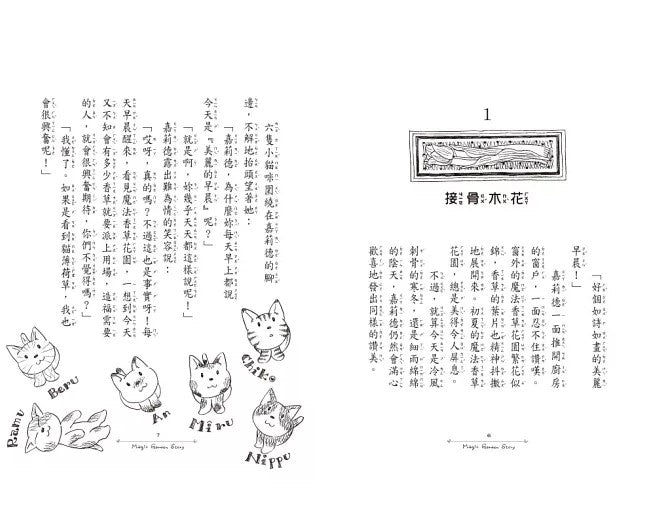 1
接骨木花
「好個如詩如畫的美麗
早晨！」
嘉莉德一面推開廚房
的窗戶，一面忍不住讚嘆。
窗外的魔法香草花園繁花似
錦，香草的葉片也精神抖擻
地展開來。初夏的魔法香草
花園，總是美得令人屏息。
不過，就算今天是冷風
刺骨的寒冬，還是細雨綿綿
的陰天，嘉莉德仍然會滿心
歡喜地發出同樣的讚美。
6
Magic Garden Story
六隻小貓咪圍繞在嘉莉德的腳
邊，不解地抬頭望著她：
「嘉莉德，為什麼妳每天早上都說
今天是『美麗的早晨』呢？」
「就是啊，妳幾乎天天都這樣說呢！」
嘉莉德露出難為情的笑容說：
「哎呀，真的嗎？不過這也是事實呀！每
天早晨醒來，看見魔法香草花園，一想到今天
又不知會有多少香草就要派上用場，造福需要
的人，就會很興奮期待，你們不覺得嗎？」
「我懂了。如果是看到貓薄荷草，我也
會很興奮呢！」
Chiko
Nippu
Miru
An
Beru
Ramu
7
Magic Garden Story